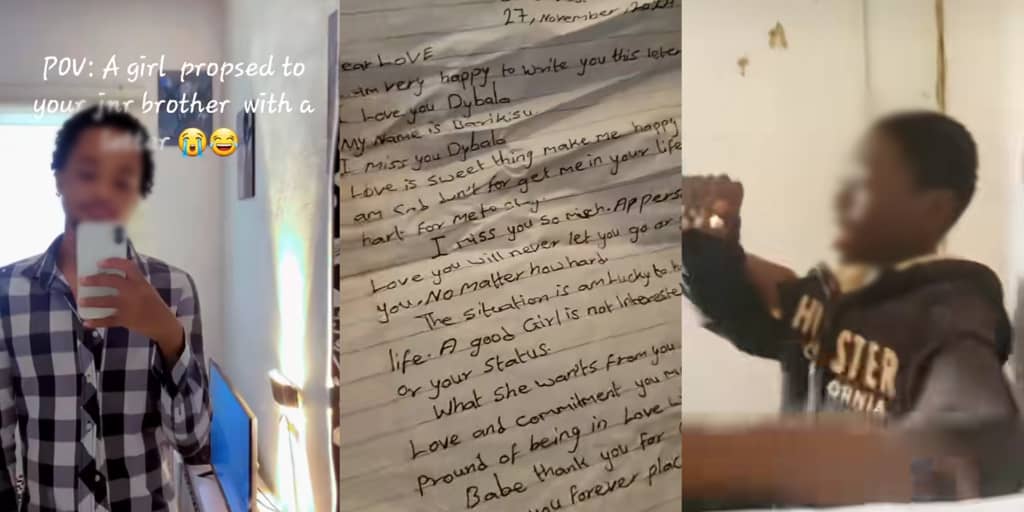 POV: A girl propsed to
your jnr brother with a
😭😄
27, November, 2024
ear LOVE
am very happy to write you this leter
I Love you Dybala
My Name is Barikisu.
I miss you Dybala
Love is sweet thing make me happy
am and don't for get me in your life
hart for me to
I miss you so much. A person
Love you will never let you go or
you. No matter how hard
The situation is am Lucky to
life. A good Girl is not interested
or your status.
What she wants from you
Love and commitment you
Pround of being in Love
Babe thank you for
you forever plac
STER
ORNIA